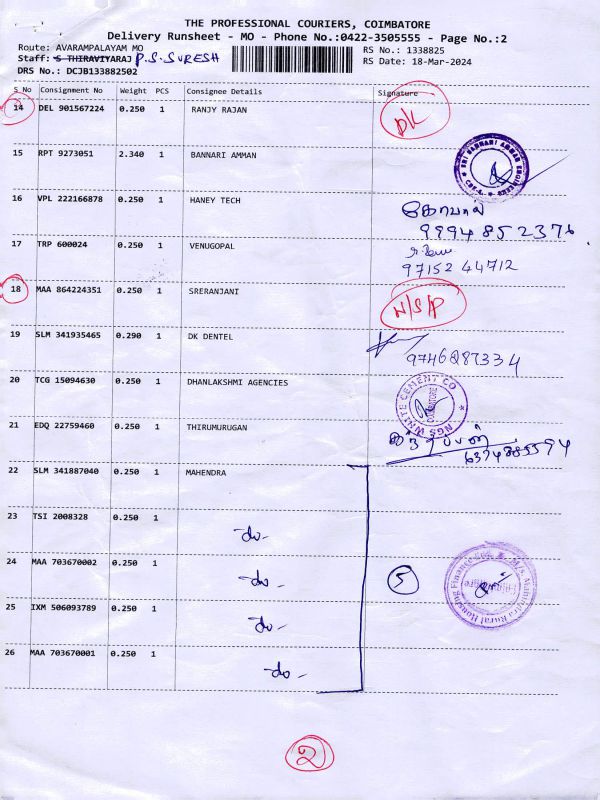 THE PROFESSIONAL COURIERS, COIMBATORE
Delivery Runsheet - MO - Phone No.:0422-3505555 - Page No.:2
Route: AVARAMPALAYAM MO RS No.: 1338825
Staff: S THIRAVIYARAJ P.S.SURESH RS Date: 18-Mar-2024
DRS No.: DCJB133882502
S No Consignment No Weight PCS Consignee Details Signature
14 DEL 901567224 0.250 1 RANJY RAJAN DK
15 RPT 9273051 2.340 1 BANNARI AMMAN
16 VPL 222166878 0.250 1 HANEY TECH கோபால்
9994852376
17 TRP 600024 0.250 1 VENUGOPAL
97152 44712
18 MAA 864224351 0.250 1 SRERANJANI N/S/P
19 SLM 341935465 0.290 1 DK DENTEL
9746287334
20 TCG 15094630 0.250 1 DHANLAKSHMI AGENCIES NGS WHITE CEMENT CO
21 EDQ 22759460 0.250 1 THIRUMURUGAN
22 SLM 341887040 0.250 1 MAHENDRA
23 TSI 2008328 0.250 1 do-
24 MAA 703670002 0.250 1 do- 5 M/s Mahindra Rural Housing Finance
25 IXM 506093789 0.250 1 do-
26 MAA 703670001 0.250 1 do-
2